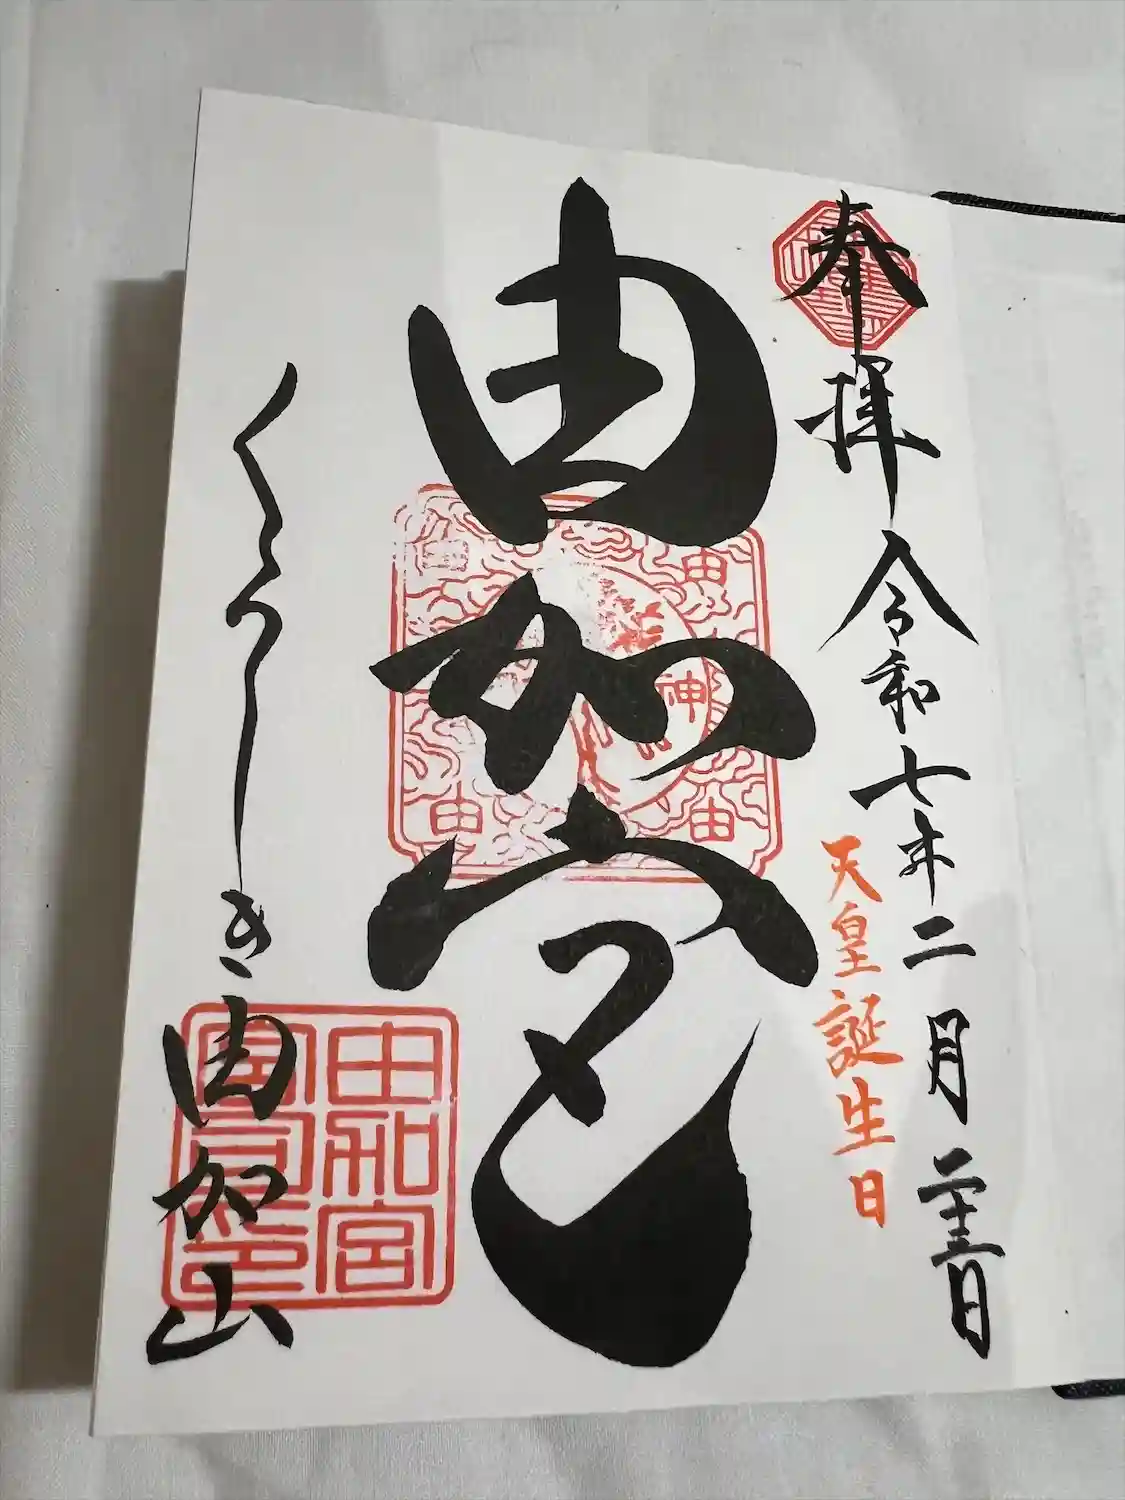 奉拝
令和七年二月二十三日
天皇誕生日
由加宮
くらしき由加山
由加宮
宮司印